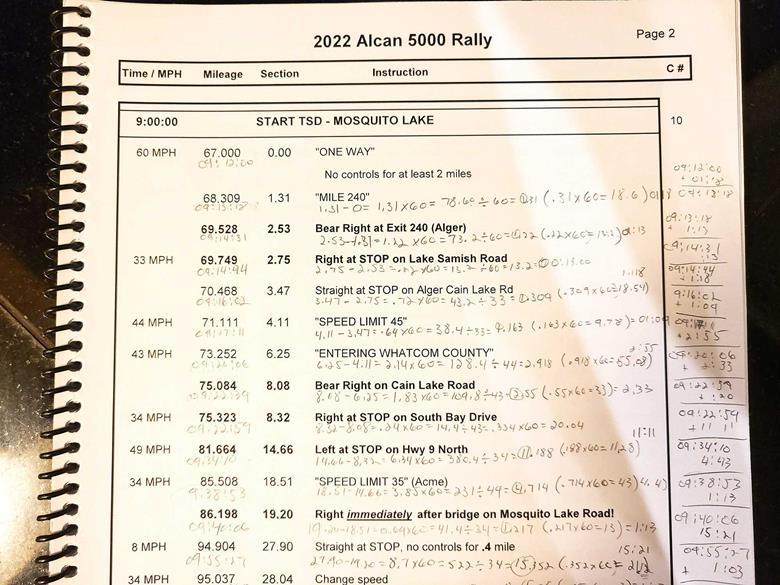 2022 Alcan 5000 Rally
Page 2
Time / MPH Mileage Section Instruction C #
9:00:00 START TSD - MOSQUITO LAKE 10
60 MPH 67.000 0.00 "ONE WAY"
09:12:00
No controls for at least 2 miles
09:12:00
68.309 1.31 "MILE 240"
09:13:18 1.31-0= 1.31x60= 78.60÷60= (.31x60=18.6)
09:13:18
69.528 2.53 Bear Right at Exit 240 (Alger)
+ 1:13
09:14:31 2.53-1.31=1.22x60=73.2÷60= (.22x60=13.2) 01:13
33 MPH 69.749 2.75 Right at STOP on Lake Samish Road
09:14:31
09:14:44 2.75-2.53=.22x60=13.2÷60=13.2=
09:14:44
+ 1:18
1:18
70.468 3.47 Straight at STOP on Alger Cain Lake Rd
09:16:02 3.47-2.75=.72x60=43.2÷33= .309 (.309x60=18.54)
9:16:02
+ 1:09
44 MPH 71.111 4.11 "SPEED LIMIT 45"
4.11-3.47=.64x60=38.4÷33= .163 (.163x60=9.78)=
+ 2:55
2:55
43 MPH 73.252 6.25 "ENTERING WHATCOM COUNTY"
09:20:06 6.25-4.11=2.14x60=128.4÷44=2.918 (.918x60=55.08)
09:20:06
+ 2:33
75.084 8.08 Bear Right on Cain Lake Road
09:22:39 8.08-6.25=1.83x60=109.8÷43= (.55x60=33)= 2.33
09:22:39
+ :20
34 MPH 75.323 8.32 Right at STOP on South Bay Drive
09:22:59 8.32-8.08=.24x60=14.4÷43=.334x60=20.04
09:22:59
+ 11:11
11:11
49 MPH 81.664 14.66 Left at STOP on Hwy 9 North
09:34:10 14.66-8.32=6.34x60=380.4÷34= .188 (.188x60=11.28)
09:34:10
4:43
34 MPH 85.508 18.51 "SPEED LIMIT 35" (Acme)
9:38:53 18.51-14.66=3.85x60=231÷49= .714 (.714x60=43)
09:38:53
1:13
86.198 19.20 Right immediately after bridge on Mosquito Lake Road!
09:40:06 19.20-18.51=0.69x60=41.4÷34= .217 (.217x60=13)=1:13
09:40:06
15:21
8 MPH 94.904 27.90 Straight at STOP, no controls for .4 mile
15:21
09:55:27 27.90-19.20=8.7x60=522÷34= .352
09:55:27
+ 1:03
34 MPH 95.037 28.04 Change speed